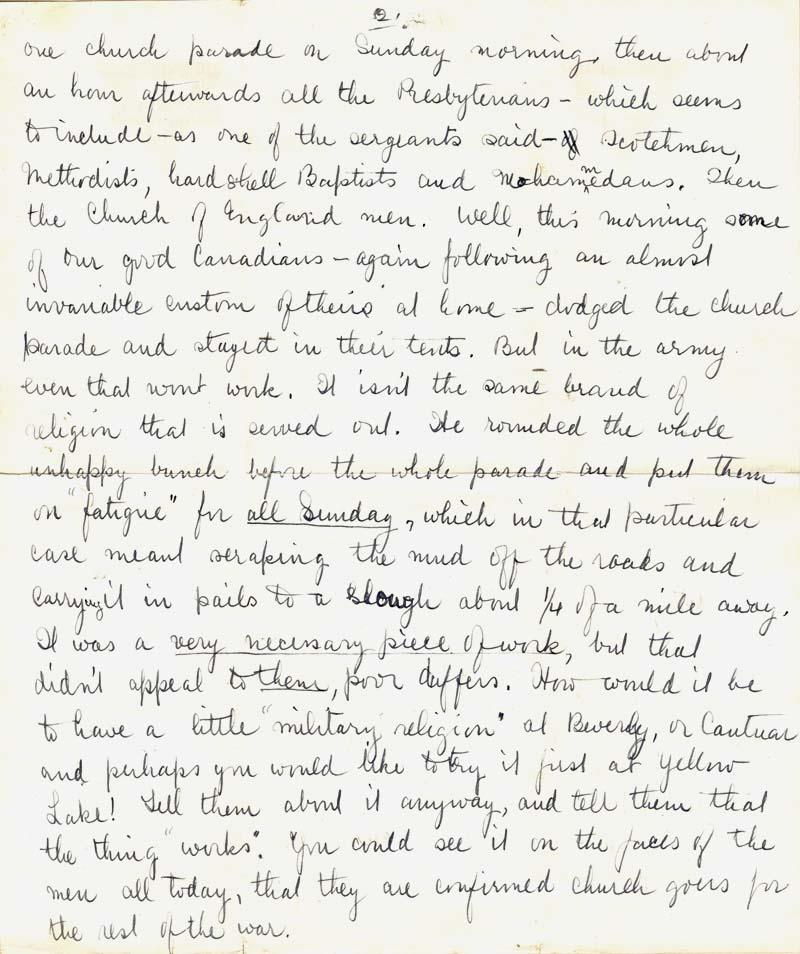 2.
one church parade on Sunday morning, then about
an hour afterwards all the Presbyterians – which seems
to include – as one of the sergeants said – Scotchmen,
Methodists, hardshell Baptists and Mohammedans. Then
the Church of England men. Well, this morning some
of our good Canadians – again following an almost
invariable custom of theirs at home – dodged the church
parade and stayed in their tents. But in the army
even that won't work. It isn't the same brand of
religion that is served out. He rounded the whole
unhappy bunch before the whole parade and put them
on "fatigue" for all Sunday, which in that particular
case meant scraping the mud off the roads and
carrying it in pails to a slough about 1/4 of a mile away.
It was a very necessary piece of work, but that
didn't appeal to them, poor duffers. How would it be
to have a little "military religion" at Beverly, or Cantuar
and perhaps you would like to try it first at Yellow
Lake! Tell them about it anyway, and tell them that
the thing "works". You could see it on the faces of the
men all today, that they are confirmed church goers for
the rest of the war.